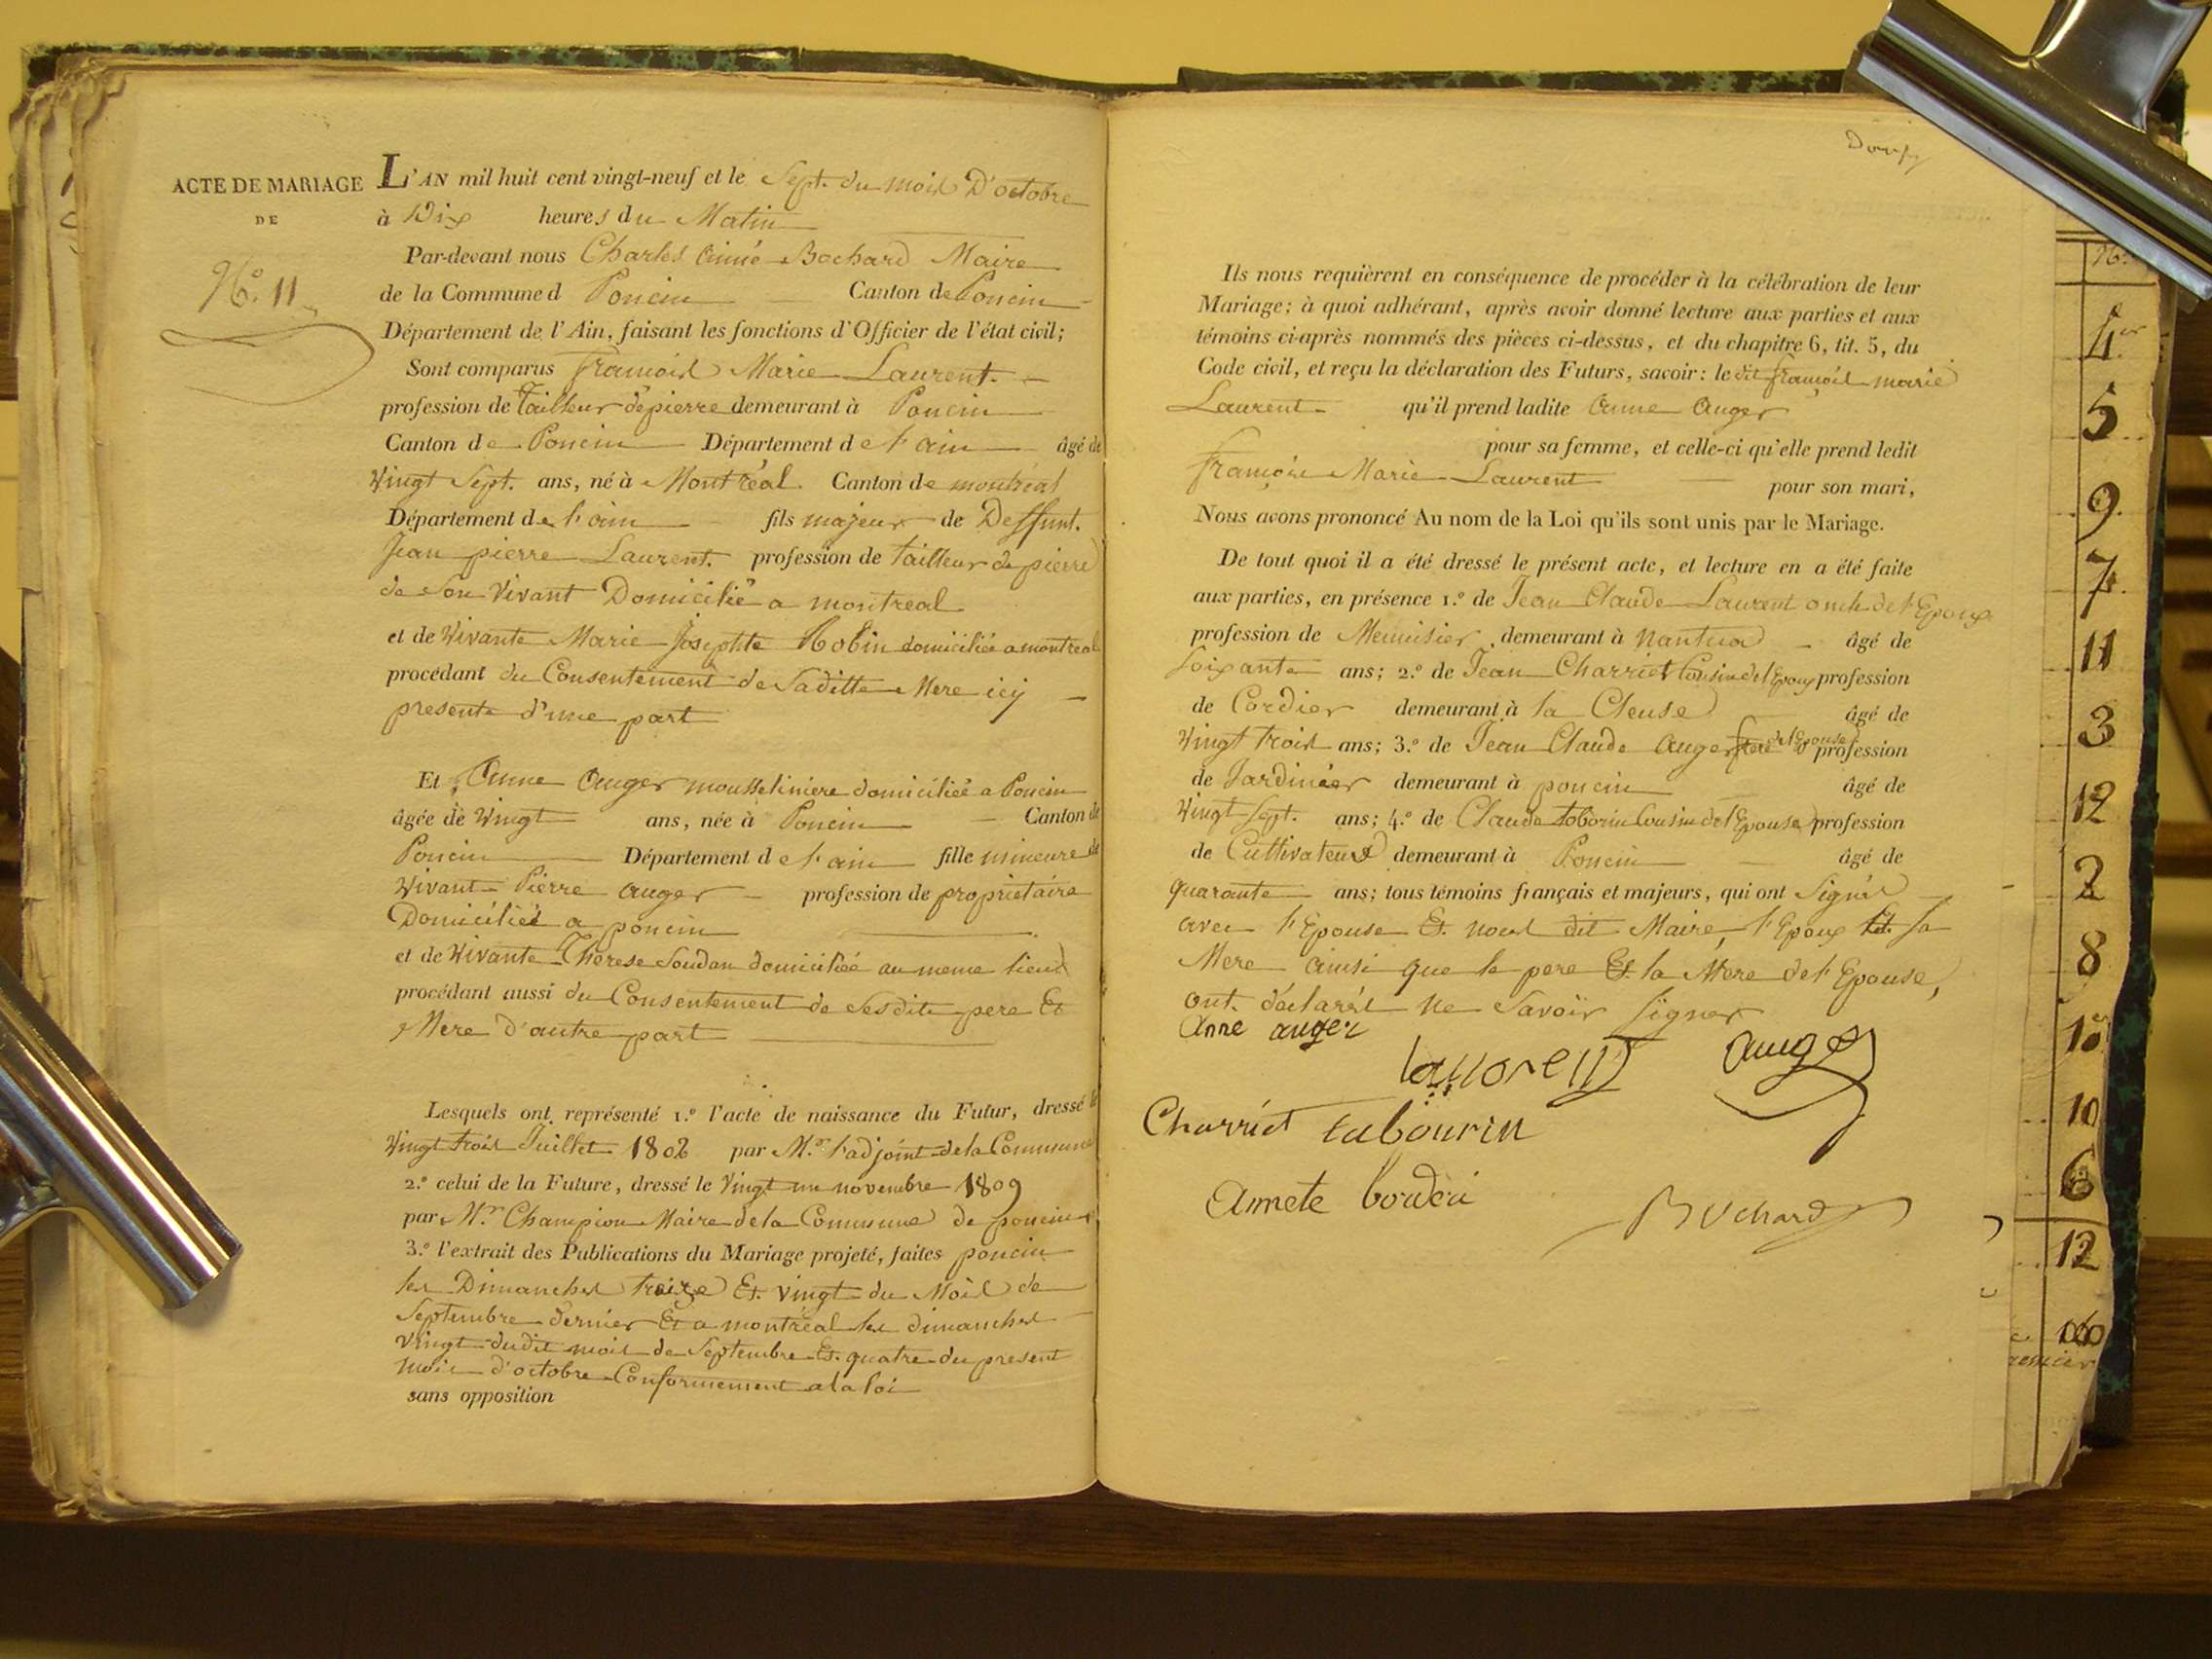 ACTE DE MARIAGE
DE
N.º 11
L'AN mil huit cent vingt-neuf et le Sept. du mois D'octobre
à Dix heures du Matin
Par-devant nous Charles Aimé Bochard Maire
de la Commune d Poncin Canton de Poncin
Département de l'Ain, faisant les fonctions d'Officier de l'état civil;
Sont comparus François Marie Laurent.
profession de Tailleur de pierre demeurant à Poncin
Canton de Poncin Département de l'ain âgé de
Vingt Sept. ans, né à Montréal. Canton de montréal
Département de l'ain fils majeur de Deffunt.
Jean pierre Laurent. profession de tailleur de pierre
de Son Vivant Domicilié a montreal
et de Vivante Marie Josephte Robin domiciliée a montreal
procédant du Consentement de Saditte Mere icy
presente d'une part
Et Anne Auger mousseliniere domiciliée a Poncin
âgée de Vingt ans, née à Poncin Canton de
Poncin Département de l'ain fille mineure de
Vivant Pierre Auger profession de propriétaire
Domicilié a poncin
et de Vivante Thérese Soudan domiciliée au meme lieu
procédant aussi du Consentement de Sesdits pere Et
Mere D'autre part
Lesquels ont représenté 1.º l'acte de naissance du Futur, dressé le
Vingt trois Juillet 1802 par M.r l'adjoint de la Commune
2.º celui de la Future, dressé le Vingt un novembre 1809
par M.r Champion Maire de la Commune de poncin
3.º l'extrait des Publications du Mariage projeté, faites poncin
les Dimanches treize Et. vingt du Mois de
Septembre dernier Et a montréal les dimanches
vingt dudit mois de Septembre Et. quatre du present
mois d'octobre Conformement a la loi
sans opposition
Ils nous requièrent en conséquence de procéder à la célébration de leur
Mariage; à quoi adhérant, après avoir donné lecture aux parties et aux
témoins ci-après nommés des pièces ci-dessus, et du chapitre 6, tit. 5, du
Code civil, et reçu la déclaration des Futurs, savoir: le dit françois marie
Laurent qu'il prend ladite Anne Auger
pour sa femme, et celle-ci qu'elle prend ledit
françois Marie Laurent pour son mari,
Nous avons prononcé Au nom de la Loi qu'ils sont unis par le Mariage.
De tout quoi il a été dressé le présent acte, et lecture en a été faite
aux parties, en présence 1.º de Jean Claude Laurent oncle de l'Epoux
profession de Menuisier demeurant à Nantua âgé de
Soixante ans; 2.º de Jean Charriet Cousin de l'Epoux profession
de Cordier demeurant à la Cleuse âgé de
Vingt trois ans; 3.º de Jean Claude Auger frere de l'Epouse profession
de Jardinier demeurant à poncin âgé de
Vingt Sept. ans; 4.º de Claude toborin Cousin de l'Epouse profession
de Cultivateur demeurant à Poncin âgé de
quarante ans; tous témoins français et majeurs, qui ont Signés
avec l'Epouse Et. nous dit Maire, l'Epoux Et. Sa
Mere ainsi que le pere Et. la Mere de l'Epouse,
ont. déclarés ne Savoir Signer
Anne auger
auger
Charriet tabourin
Annete
Bochard
N.º
4
5
9
7
11
3
12
2
8
10
10
6
12